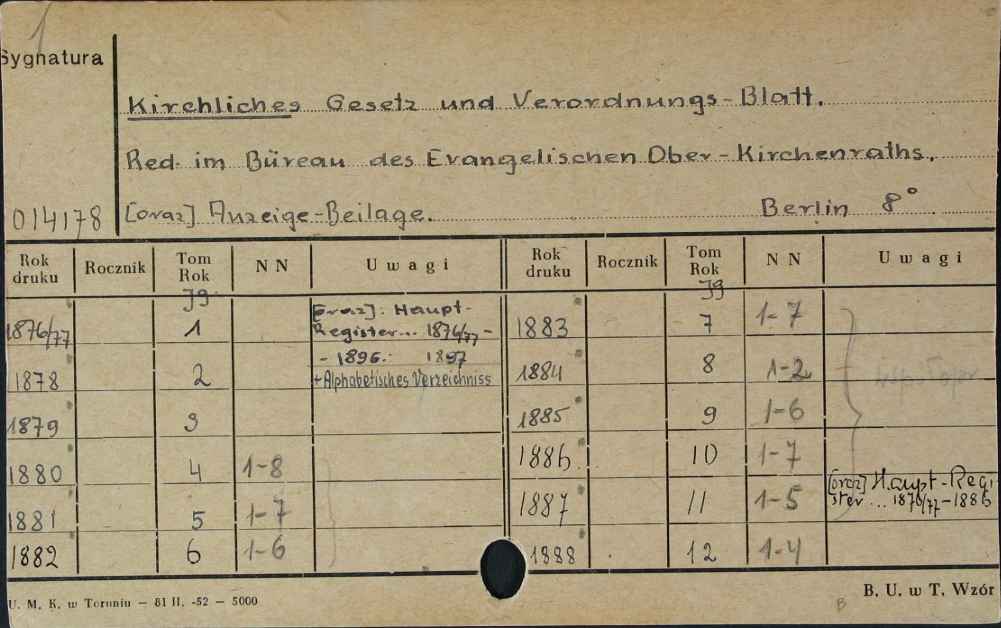 Sygnatura
Kirchliches Gesetz und Verordnungs-Blatt.
Red. im Büreau des Evangelischen Ober-Kirchenraths.
014178 [oraz] Anzeige-Beilage. Berlin 8°
Rok druku Rocznik Tom Rok NN Uwagi Rok druku Rocznik Tom Rok NN Uwagi
Jg Jg
1876/77 1 [oraz]: Haupt-Register... 1876/77 - - 1896. 1897 1883 7 1-7
1878 2 + Alphabetisches Verzeichniss 1884 8 1-2
1879 3 1885 9 1-6
1880 4 1-8 1886 10 1-7
1881 5 1-7 1887 11 1-5 [oraz] Haupt-Register... 1876/77-1886
1882 6 1-6 1888 12 1-4
U. M. K. w Toruniu — 81 II. -52 — 5000 B B. U. w T. Wzór